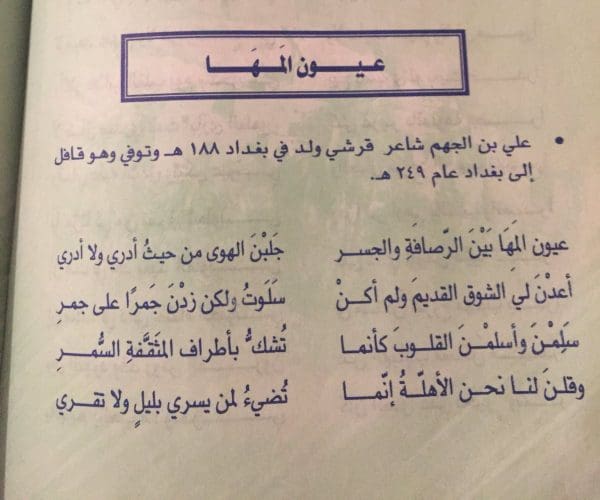 عيـــون المَـهَـــا
• علي بن الجهم شاعر قرشي ولد في بغداد ١٨٨ هـ وتوفي وهو قافل
إلى بغداد عام ٢٤٩ هـ.
عيون المَهَا بَيْنَ الرّصافَةِ والجسر جَلَبْنَ الهوى من حيثُ أدري ولا أدري
أعدْنَ لي الشوق القديمَ ولم أكنْ سَلَوتُ ولكن زدْنَ جَمرًا على جمرِ
سَلِمْنَ وأسلمْنَ القلوبَ كأنما تُشكُّ بأطراف المثَقَّفةِ السُّمرِ
وقلنَ لنا نحن الأهلّةُ إنّما تُضيءُ لمن يسري بليلٍ ولا تقري